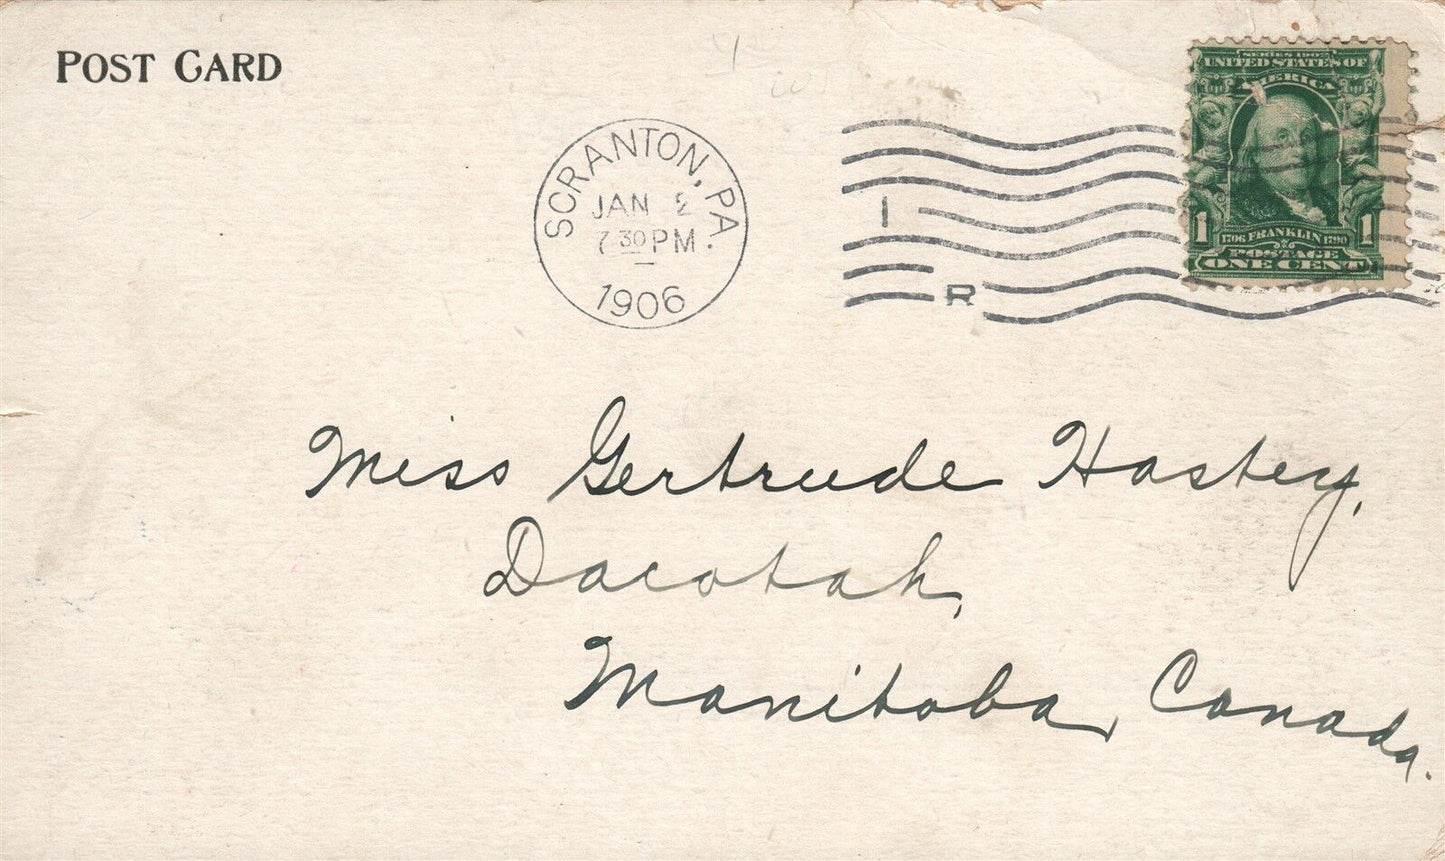 POST CARD
SCRANTON, PA.
JAN 2
7 30 PM
1906
I
R
SERIES 1902
UNITED STATES OF
AMERICA
1 1706 FRANKLIN 1790 1
POSTAGE
ONE CENT
Miss Gertrude Hastey,
Dacotah,
Manitoba, Canada.